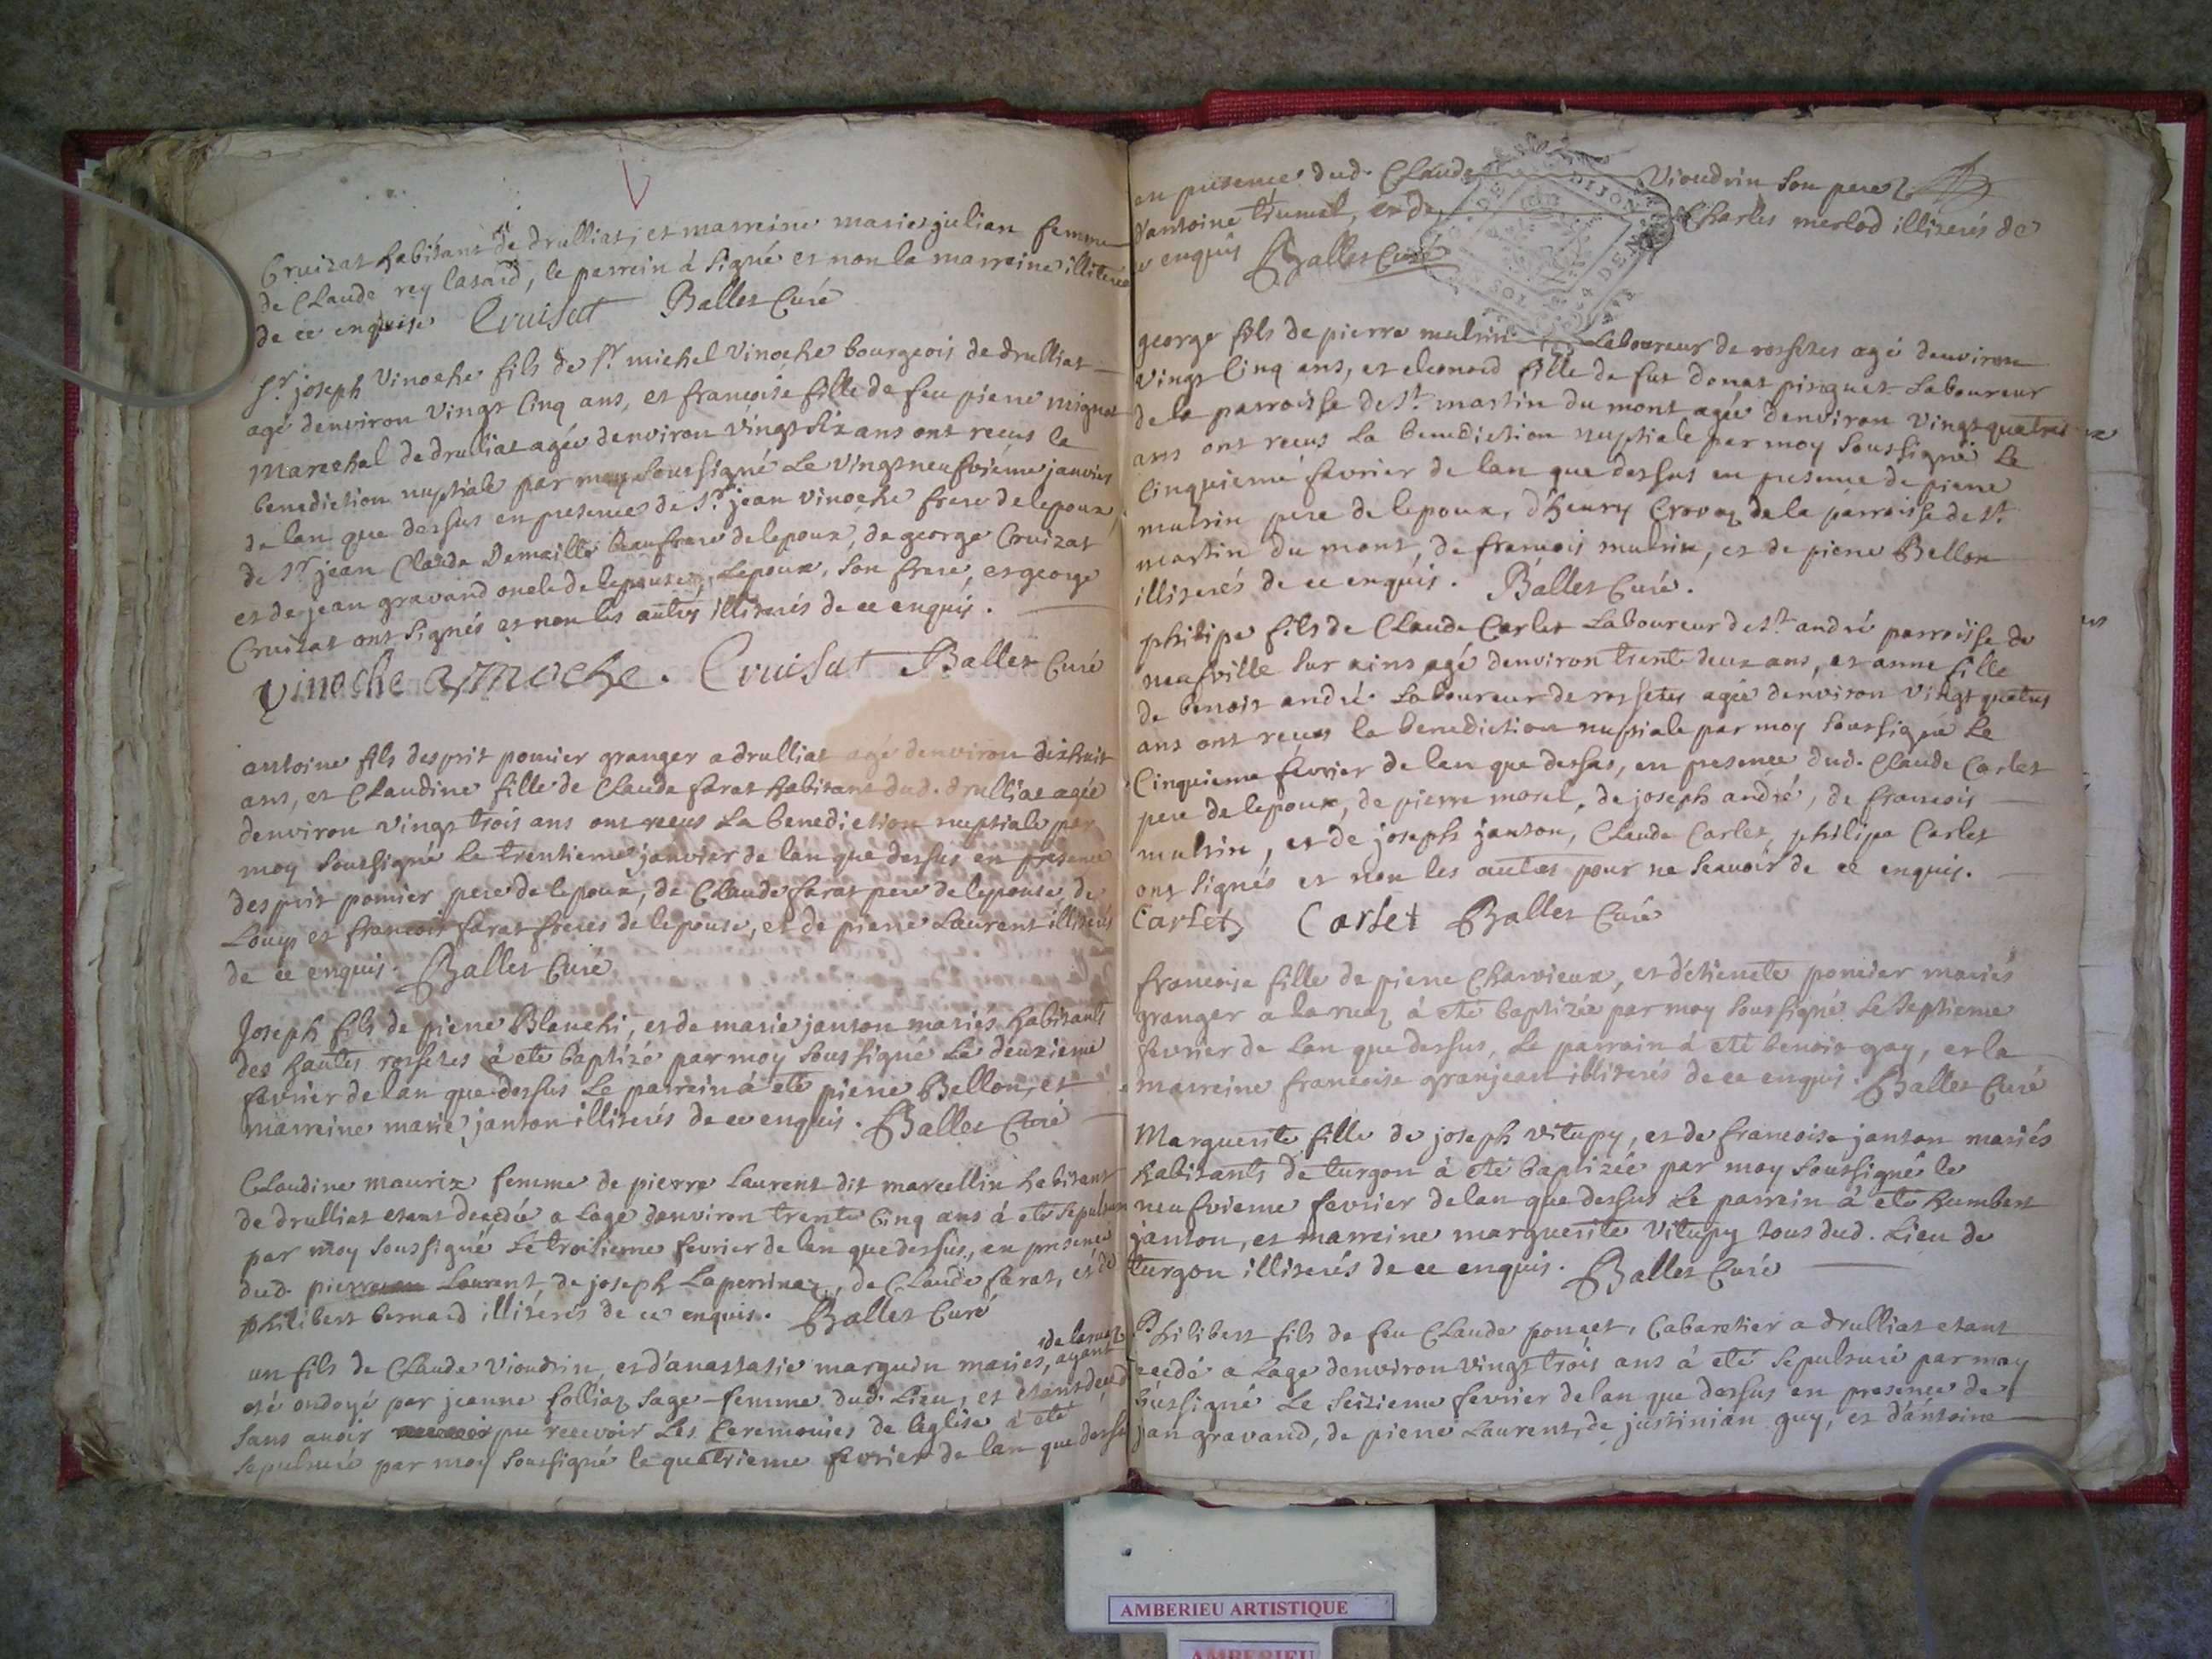 Cruizat habitant de drulliat, et marreine marie julian femme
de Claude rey lasard, le parrein à signé et non la marreine illiteree
de ce enquise Cruisat Ballet Curé
Sr. joseph Vinoche fils de Sr. michel Vinoche bourgeois de drulliat
agé denviron Vingt Cinq ans, et françoise fille de feu piere mignat
Marechal de drulliat agée denviron vingt six ans ont recus la
benediction nuptiale par moy soussigné Le Vingtneufvième janvier
de lan que dessus en presence de Sr. jean vinoche frere de lepoux,
de Sr jean Claude Demaille beaufrere de lepoux, de george Cruizat
et de jean gravand oncle de lepouse, Lepoux, son frere, et george
Cruizat ont signés et non les autres illiterés de ce enquis.
Vinoche Vinoche. Cruisat Ballet Curé
antoine fils desprit pomier granger a drulliat agé denviron dixhuit
ans, et Claudine fille de Claude farat habitant dud. drulliat agée
denviron vingt trois ans ont recus La benediction nuptiale par
moy soussigné le trentieme janvier de lan que dessus en presence
desprit pomier pere de lepoux, de Claude farat pere de lepouse, de
Louys et françois farat freres de lepouse, et de piere Laurent illiterés
de ce enquis. Ballet Curé
Joseph fils de piere Blanchi, et de marie janton mariés habitants
des hautes rossetes à eté baptizé par moy soussigné Le deuzieme
fevrier de lan que dessus Le parrein à eté piere Bellon, et
marreine marie janton illiterés de ce enquis. Ballet Curé
Claudine mauriz femme de pierre Laurent dit marcellin habitant
de drulliat etant decedée a Lage denviron trente Cinq ans à eté sepulturée
par moy soussigné Le troisieme fevrier de lan que dessus, en presence
dud. pierre Laurent, de joseph Laperrinaz, de Claude farat, et de
philibert bernard illiterés de ce enquis. Ballet Curé
de laruaz
un fils de Claude Vioudrin, et d'anastasie marguin mariés, ayant
eté ondoyé par jeanne folliaz sage-femme dud. Lieu, et etant decedé
sans avoir pu recevoir Les Ceremonies de leglise à eté
sepulturé par moy soussigné le quatrieme fevrier de lan que dessus
en presence dud. Claude Vioudrin son pere
d'antoine trumel, et de Charles merlod illiterés de
ce enquis Ballet Curé
DIJON
george fils de pierre mulrin Laboureur de rossetes agé denviron
Vingt Cinq ans, et eleonord fille de fut donat pinguet Laboureur
de la parroisse de St. martin du mont agée denviron Vingt quatre
ans ont recus La benediction nuptiale par moy soussigné Le
Cinquieme fevrier de lan que dessus en presence de piere
mulrin pere de lepoux, d'henry Crovaz de la parroisse de St.
martin du mont, de francois mulrin, et de piere Bellon
illiterés de ce enquis. Ballet Curé.
philipe fils de Claude Carlet Laboureur de St. andré parroisse de
neufville sur ains agé denviron trente deux ans, et anne fille
de benoit andré Laboureur de rossetes agée denviron vingt quatres
ans ont recus la benediction nuptiale par moy soussigné Le
Cinquieme fevrier de lan que dessus, en presence dud. Claude Carlet
pere de lepoux, de pierre morel, de joseph andré, de francois
mulrin, et de joseph janton, Claude Carlet, philipe Carlet
ont signés et non les autres pour ne scavoir de ce enquis.
Carlet Carlet Ballet Curé
francoise fille de piere Charvieux, et d'etienete pomier mariés
granger a laruaz à eté baptizée par moy soussigné Le septieme
fevrier de lan que dessus, Le parrain à eté benoit gay, et la
marreine francoise granjean illiterés de ce enquis. Ballet Curé
Marguerite fille de joseph vitupy, et de francoise janton mariés
habitants de turgon à eté baptizée par moy soussigné le
neufvieme fevrier de lan que dessus Le parrein à eté humbert
janton, et marreine marguerite Vitupy tous dud. Lieu de
turgon illiterés de ce enquis. Ballet Curé
Philibert fils de feu Claude poncet, Cabaretier a drulliat etant
decedé a Lage denviron Vingt trois ans à eté sepulturé par moy
soussigné Le seizieme fevrier de lan que dessus en presence de
jan gravand, de piere Laurent, de justinian guy, et d'antoine
AMBERIEU ARTISTIQUE
AMBERIEU